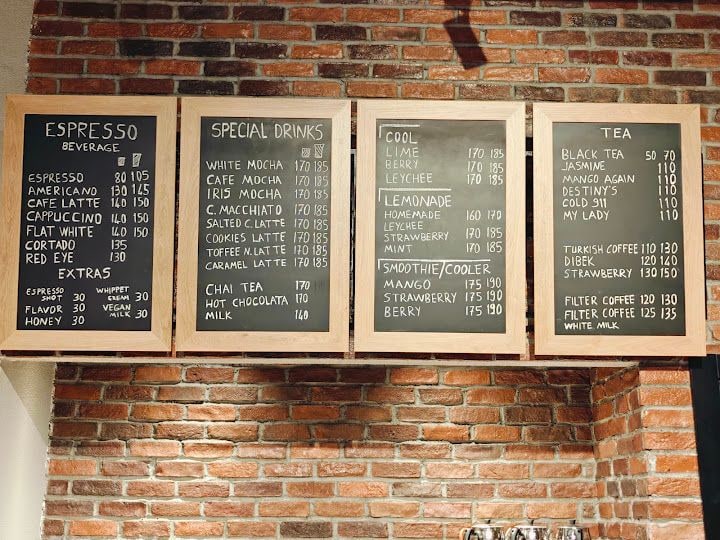 ESPRESSO
BEVERAGE
ESPRESSO 80 105
AMERICANO 130 145
CAFE LATTE 140 150
CAPPUCCINO 140 150
FLAT WHITE 140 150
CORTADO 135
RED EYE 130
EXTRAS
ESPRESSO SHOT 30
FLAVOR 30
HONEY 30
WHIPPET CREAM 30
VEGAN MILK 30
SPECIAL DRINKS
WHITE MOCHA 170 185
CAFE MOCHA 170 185
IRIS MOCHA 170 185
C. MACCHIATO 170 185
SALTED C. LATTE 170 185
COOKIES LATTE 170 185
TOFFEE N. LATTE 170 185
CARAMEL LATTE 170 185
CHAI TEA 170
HOT CHOCOLATA 170
MILK 140
COOL
LIME 170 185
BERRY 170 185
LEYCHEE 170 185
LEMONADE
HOMEMADE 160 170
LEYCHEE
STRAWBERRY 170 185
MINT 170 185
SMOOTHIE/COOLER
MANGO 175 190
STRAWBERRY 175 190
BERRY 175 190
TEA
BLACK TEA 50 70
JASMINE 110
MANGO AGAIN 110
DESTINY'S 110
COLD 911 110
MY LADY 110
TURKISH COFFEE 110 130
DIBEK 120 140
STRAWBERRY 130 150
FILTER COFFEE 120 130
FILTER COFFEE 125 135
WHITE MILK